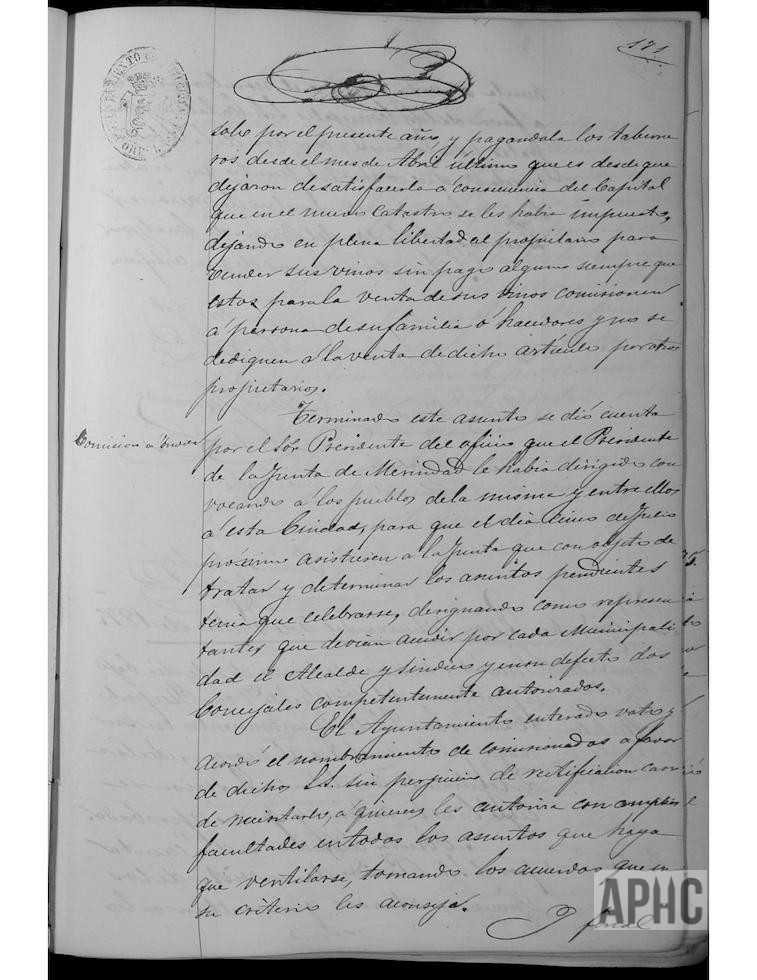 171
solo por el presente año, y pagandola los taberne
ros desde el mes de Abril último que es desde que
dejaron de satisfacerla á consecuencia del Capital
que en el nuevo Catastro se les habia impuesto,
dejando en plena libertad al propietario para
vender sus vinos sin pago alguno siempre que
estos para la venta de sus vinos comisionen
á persona de su familia ó hacedores y no se
dediquen á la venta de dicho articulo por otros
propietarios.
Terminado este asunto se dió cuenta
Comision a Tudela
por el Sor. Presidente del oficio que el Presidente
de la Junta de Merindad le habia dirigido con
vocando á los pueblos de la misma y entre ellos
á esta Ciudad, para que el dia cinco de Julio
próximo asistiesen a la Junta que con objeto de
tratar y determinar los asuntos pendientes
tenia que celebrarse, designando como represen
tantes que debian acudir por cada Municipali
dad el Alcalde y Sindico y en su defecto dos
Concejales competentemente autorizados.
El Ayuntamiento enterado votó y
acordó el nombramiento de comisionados a favor
de dichos S.S. sin perjuicio de rectificacion caso
de necesitarlo, á quienes les autoriza con amplias
facultades en todos los asuntos que haya
que ventilarse, tomando los acuerdos que en
su criterio les aconseje.
APHC